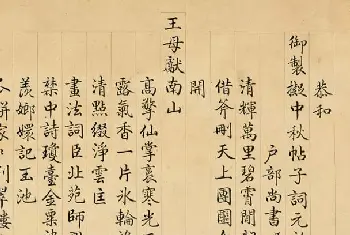 恭和
御製擬中秋帖子詞元
戶部尚書
清輝萬里碧霄開
斧刪天上團圞
開
王母獻南山
高擎仙掌裛寒光
露氣香一片氷輪
清點綴淨雲匡
畫法詞臣北苑師
禁中詩瓊臺金粟
羨嫏嬛記玉池